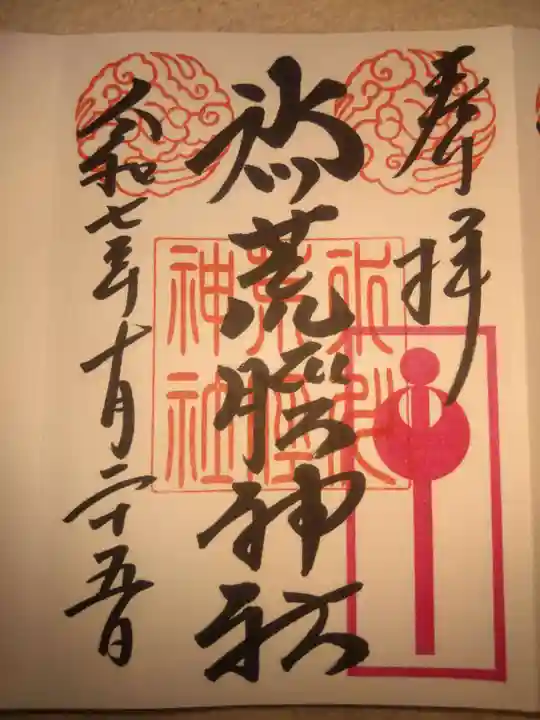 奉拝
氷川荒脛神社
令和七年十月二十五日
神社